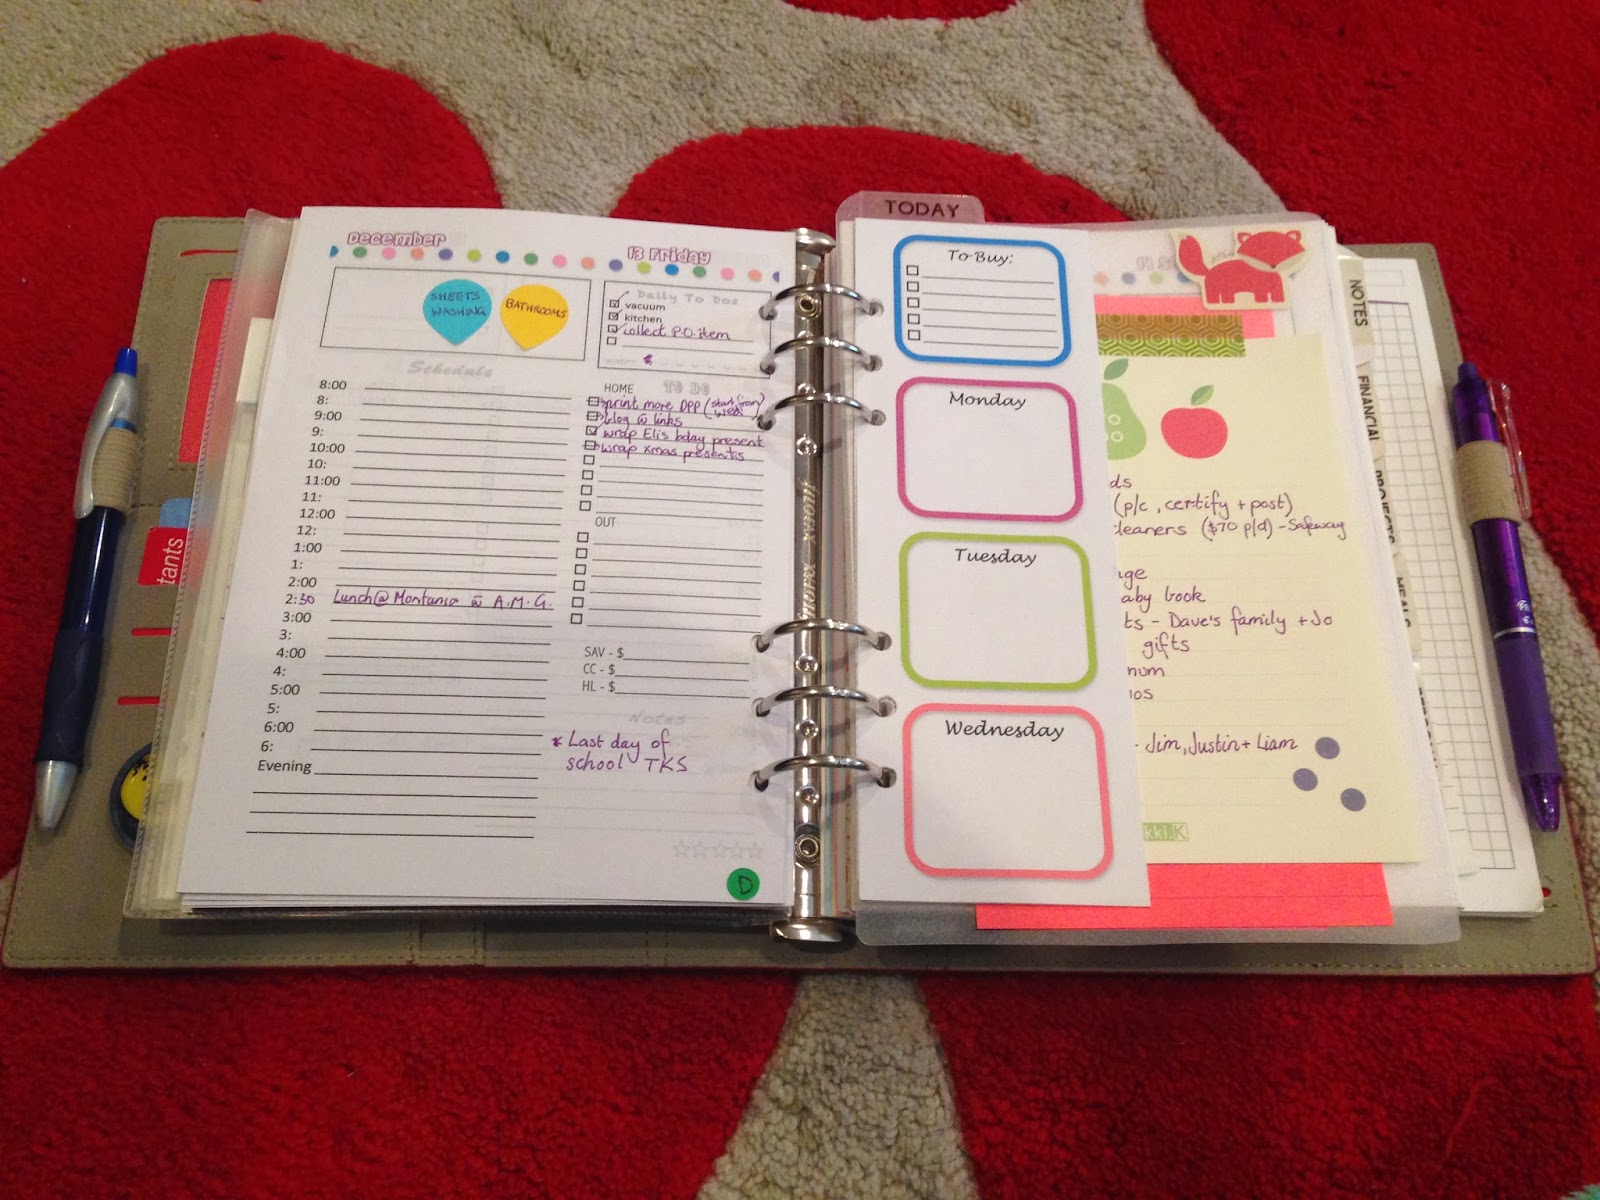 December
13 Friday
SHEETS
WASHING
BATHROOMS
Daily To Dos
vacuum
kitchen
collect P.O. item
Schedule
8:00
8:
9:00
9:
10:00
10:
11:00
11:
12:00
12:
1:00
1:
2:00
2:30 Lunch @ Montania w̄ A.M.G.
3:00
3:
4:00
4:
5:00
5:
6:00
6:
Evening
HOME TO DO
print more DPP (start from Wed)
blog w̄ links
wrap Eli's bday present
wrap xmas presents
OUT
SAV - $
CC - $
HL - $
Notes
* Last day of
school TKS
D
tants
TODAY
To Buy:
Monday
Tuesday
Wednesday
14
ds
(p/c, certify + post)
cleaners ($70 p/d) - Safeway
age
aby book
ts - Dave's family + Jo
gifts
mum
ios
- Jim, Justin + Liam
kki.K
NOTES
FINANCIAL
PROJECTS
MEALS